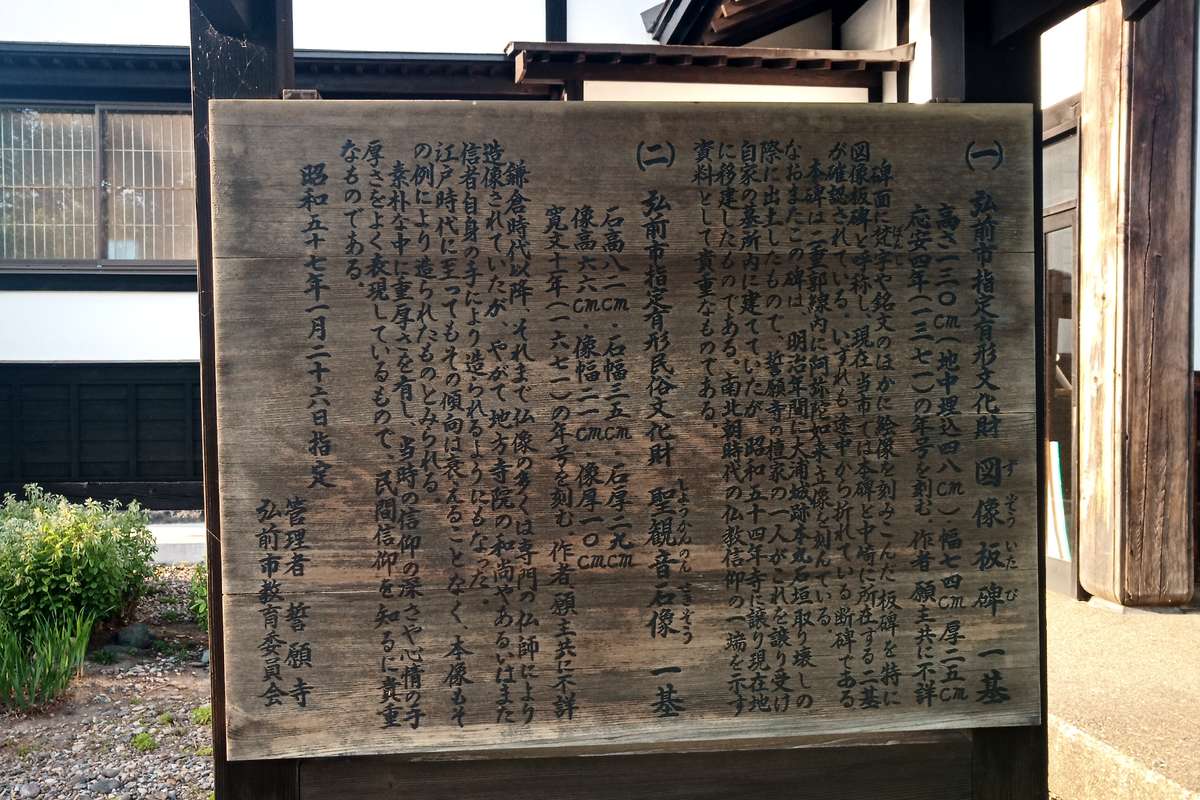 (一) 弘前市指定有形文化財 図像板碑 一基
ずぞういたび
高さ一三〇cm(地中埋込四八cm)幅七四cm厚二五cm
応安四年(一三七一)の年号を刻む。作者願主共に不詳
碑面に梵字や銘文のほかに絵像を刻みこんだ板碑を特に
ぼんじ
図像板碑と呼称し、現在当市では本碑と中崎に所在する二基
が確認されている。いずれも途中から折れている断碑である
本碑は二重郭線内に阿弥陀如来立像を刻んでいる。
なおまたこの碑は、明治年間に大浦城跡本丸石垣取り壊しの
際に出土したもので、誓願寺の檀家の一人がこれを譲り受け
自家の墓所内に建てていたが、昭和五十四年寺に譲り現在地
に移建したものである。南北朝時代の仏教信仰の一端を示す
資料として貴重なものである。
(二) 弘前市指定有形民俗文化財 聖観音石像 一基
しょうかんのん せきぞう
石高八二cm．石幅三五cm．石厚二九cm
像高六六cm．像幅二一cm．像厚一〇cm
寛文十一年(一六七一)の年号を刻む。作者願主共に不詳
鎌倉時代以降、それまで仏像の多くは専門の仏師により
造像されていたが、やがて地方寺院の和尚やあるいはまた
信者自身の手により造られるようにもなった。
江戸時代に至ってもその傾向は衰えることなく、本像もそ
の例により造られたものとみられる。
素朴な中に重厚さを有し、当時の信仰の深さや心情の手
厚さをよく表現しているもので、民間信仰を知るに貴重
なものである。
昭和五十七年一月二十六日指定
管理者 誓願寺
弘前市教育委員会